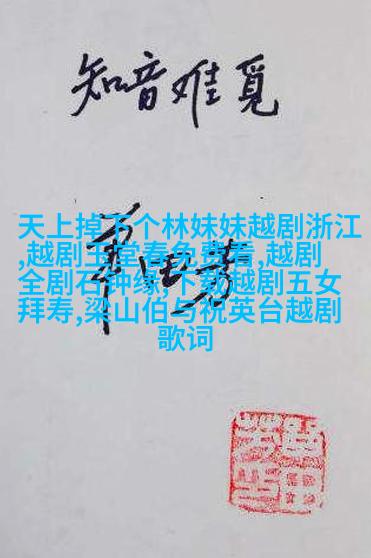 知音难觅
天上掉下个林妹妹越剧浙江
,越剧玉堂春免费看,越剧
全剧石钟缘,下载越剧五女
拜寿,梁山伯与祝英台越剧
歌词